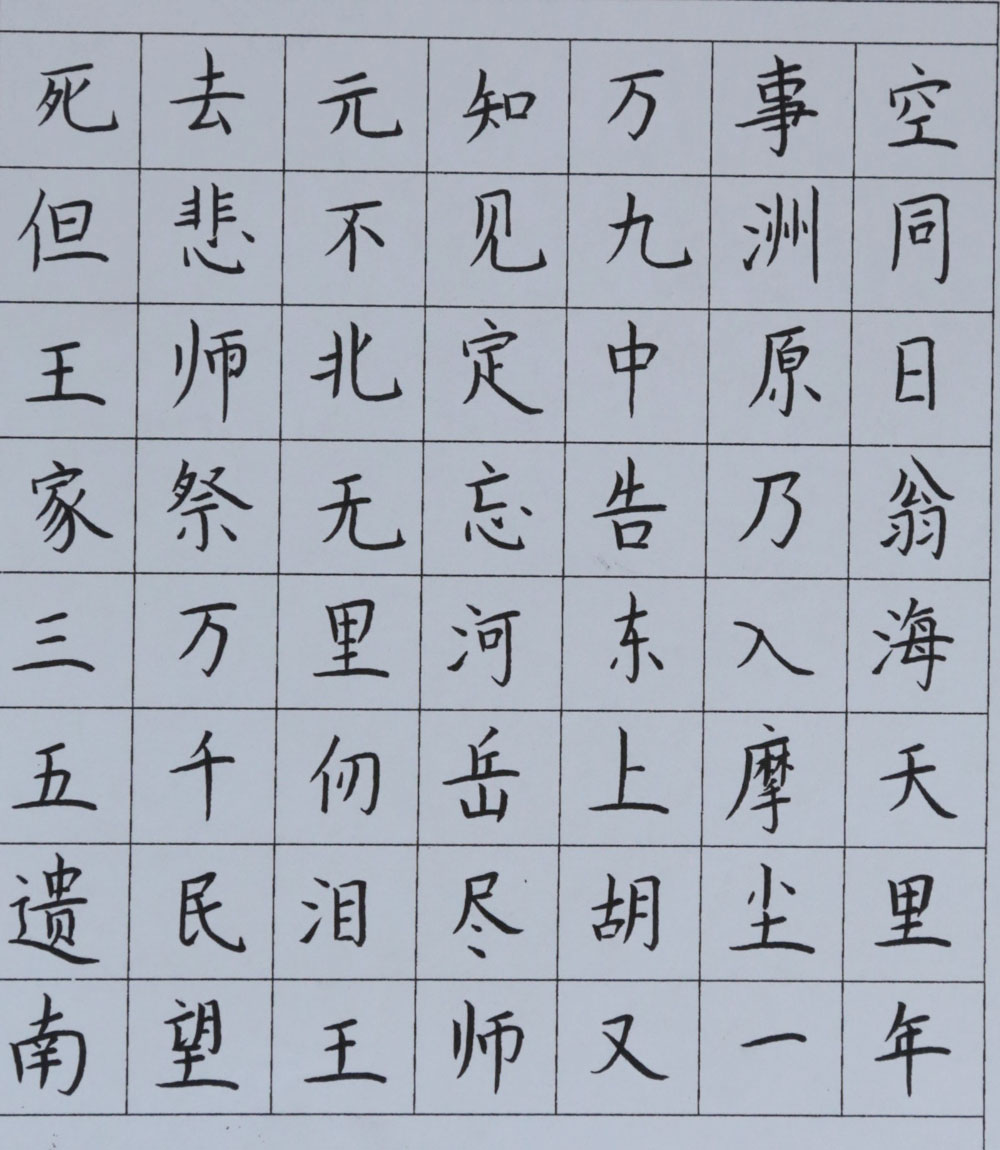 死去元知万事空
但悲不见九洲同
王师北定中原日
家祭无忘告乃翁
三万里河东入海
五千仞岳上摩天
遗民泪尽胡尘里
南望王师又一年